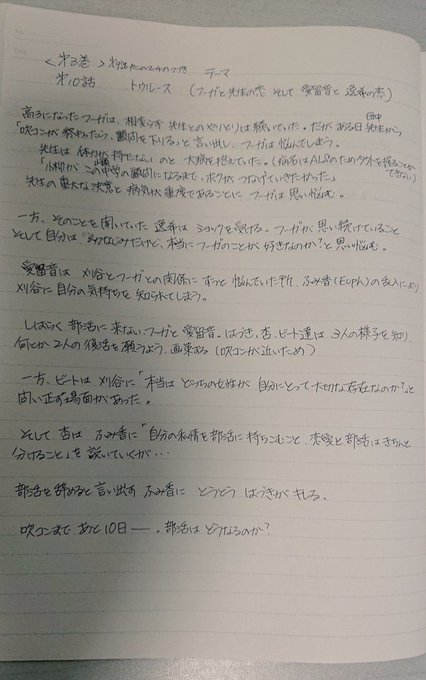 <第3巻>
テーマ
第10話 トゥルース (フーガと先生の恋 そして 愛留音と 遥希の恋)
高3になったフーガは、相変らず 先生とのやりとりは続いていた。だが ある日 田中先生から
「吹コンが終わったら、顧問を下りる」と言い出し、フーガは悩んでしまう。
先生は 体力が持たない のと 大病を抱えていた。(病名はALSのため タクトを振ることができない)
「小柳が この中学の顧問になるまで、ボクが つなげていきたかった。」
先生の重大な決意と 病気が重度であることに フーガは 思い悩む。
一方、そのことを聞いていた 遥希は ショックを受ける。フーガが 思い続けていること
そして自分は "おさななじみだけど、本当に フーガのことが 好きなのか?"と思い悩む。
愛留音は 刈谷とフーガとの関係に ずっと 悩んでいた折、ふみ香(Euph)の乱入により
刈谷に自分の気持ちを 知られてしまう。
しばらく 部活に 来ないフーガと 愛留音。はづき、杏、ビート達は 3人の様子を知り、
何とか 2人の復活を願うよう、画策する (吹コンが近いため)
一方、ビートは 刈谷に「本当は どっちの女性が 自分にとって 大切な存在なのか?」と
問い正す場面があった。
そして 杏は ふみ香に「自分の私情を部活に 持ちこむこと、恋愛と部活は きちんと
分けること」を 説いていくが…
部活を辞めると言い出す ふみ香に とうとう はづきが キレる。
吹コンまで あと10日――。部活は どうなるのか?